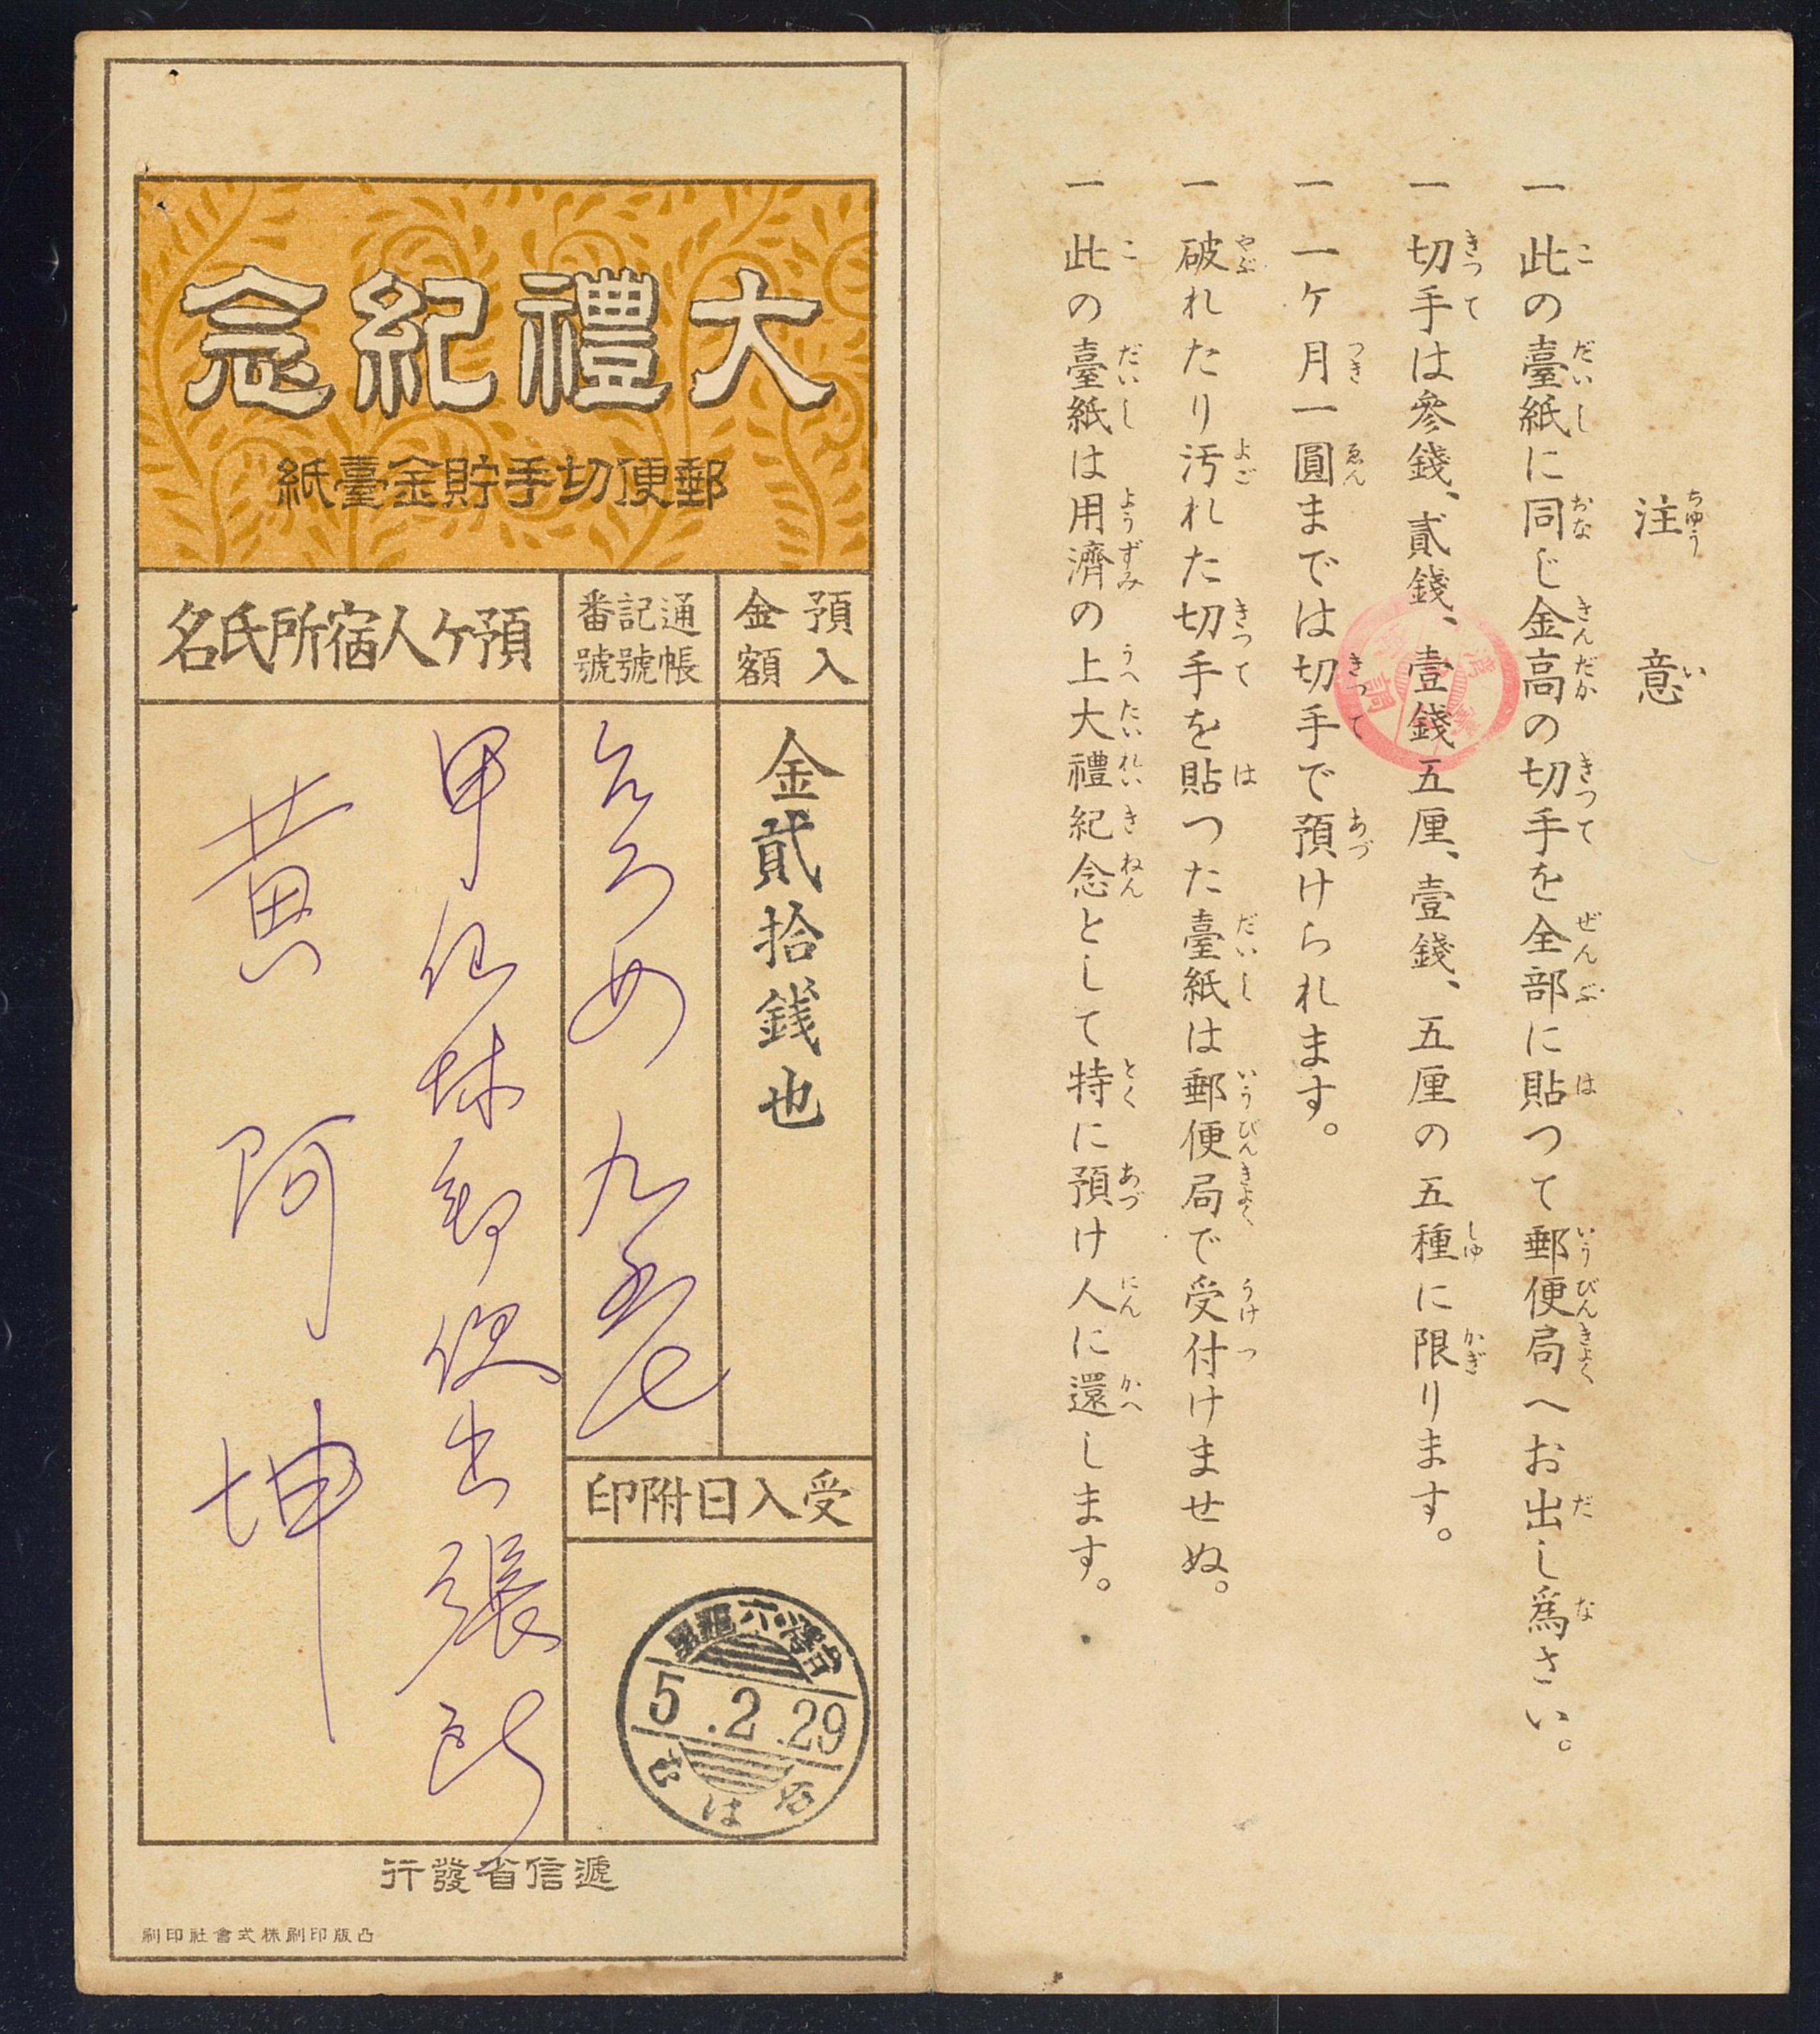 注意
一 此の臺紙に同じ金高の切手を全部に貼つて郵便局へお出し爲さい。
一 切手は參錢、貳錢、壹錢五厘、壹錢、五厘の五種に限ります。
一 一ケ月一圓までは切手で預けられます。
一 破れたり汚れた切手を貼つた臺紙は郵便局で受付けませぬ。
一 此の臺紙は用濟の上大禮紀念として特に預け人に還します。
大禮紀念
郵便切手貯金臺紙
預入金額
金貳拾銭也
通帳記號番號
九五七
預ケ人宿所氏名
甲仙埔郵便出張所
黄阿坤
受入日附印
5.2.29
遞信省發行
凸版印刷株式會社印刷